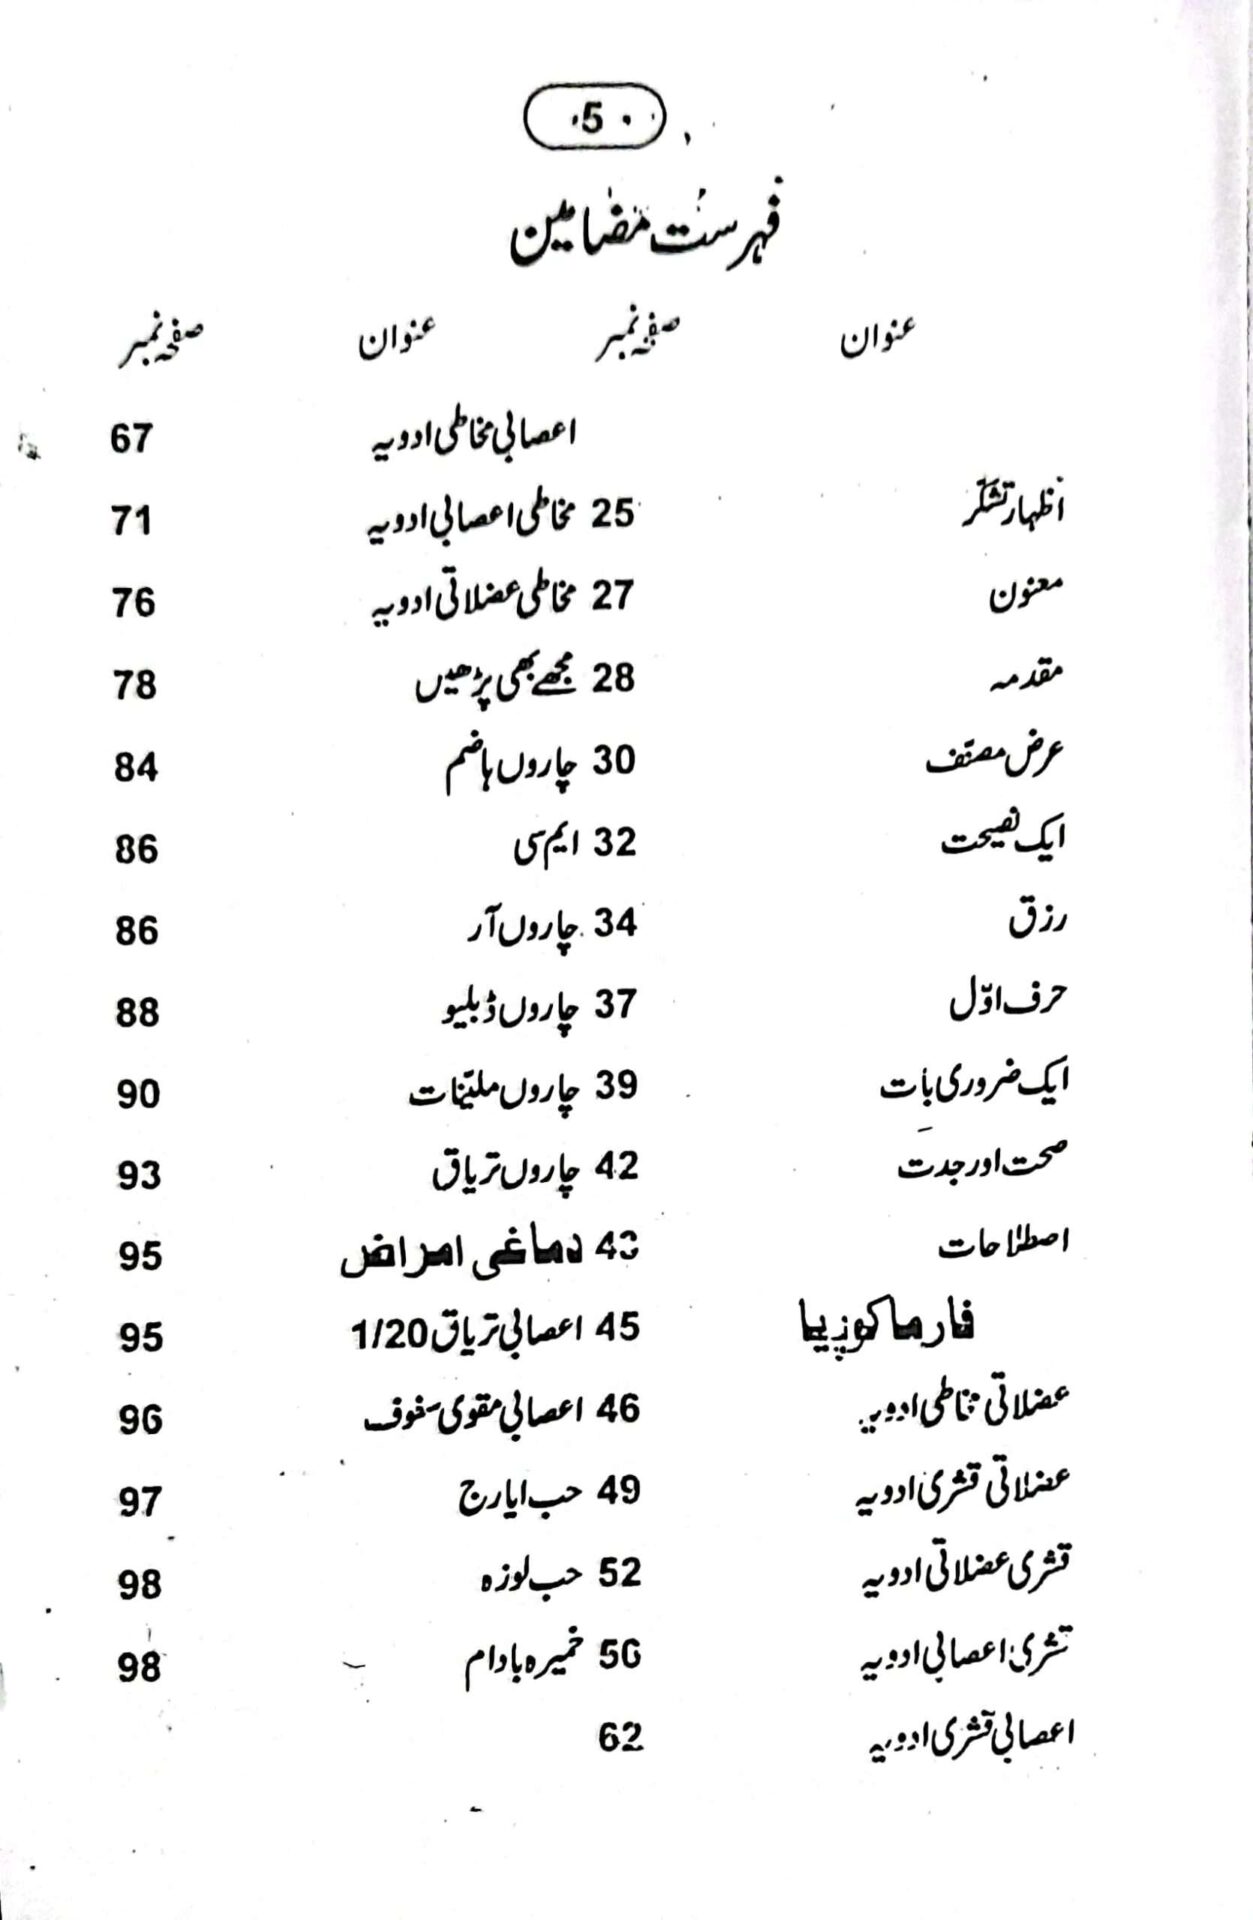 5
فہرست مضامین
عنوان صفحہ نمبر عنوان صفحہ نمبر
اعصابی مخاطی ادویہ 67
اظہار تشکر 25 مخاطی اعصابی ادویہ 71
معنون 27 مخاطی عضلاتی ادویہ 76
مقدمہ 28 مجھے بھی پڑھیں 78
عرض مصنف 30 چاروں ہاضم 84
ایک نصیحت 32 ایم سی 86
رزق 34 چاروں آر 86
حرف اوّل 37 چاروں ڈبلیو 88
ایک ضروری بات 39 چاروں ملیّنات 90
صحت اور جدت 42 چاروں تریاق 93
اصطلاحات 43 دماغی امراض 95
فارماکوپیا 45 اعصابی تریاق 1/20 95
عضلاتی مخاطی ادویہ 46 اعصابی مقوی سفوف 96
عضلاتی قشری ادویہ 49 حب ایارج 97
قشری عضلاتی ادویہ 52 حب لوزہ 98
قشری اعصابی ادویہ 56 خمیرہ بادام 98
اعصابی قشری ادویہ 62